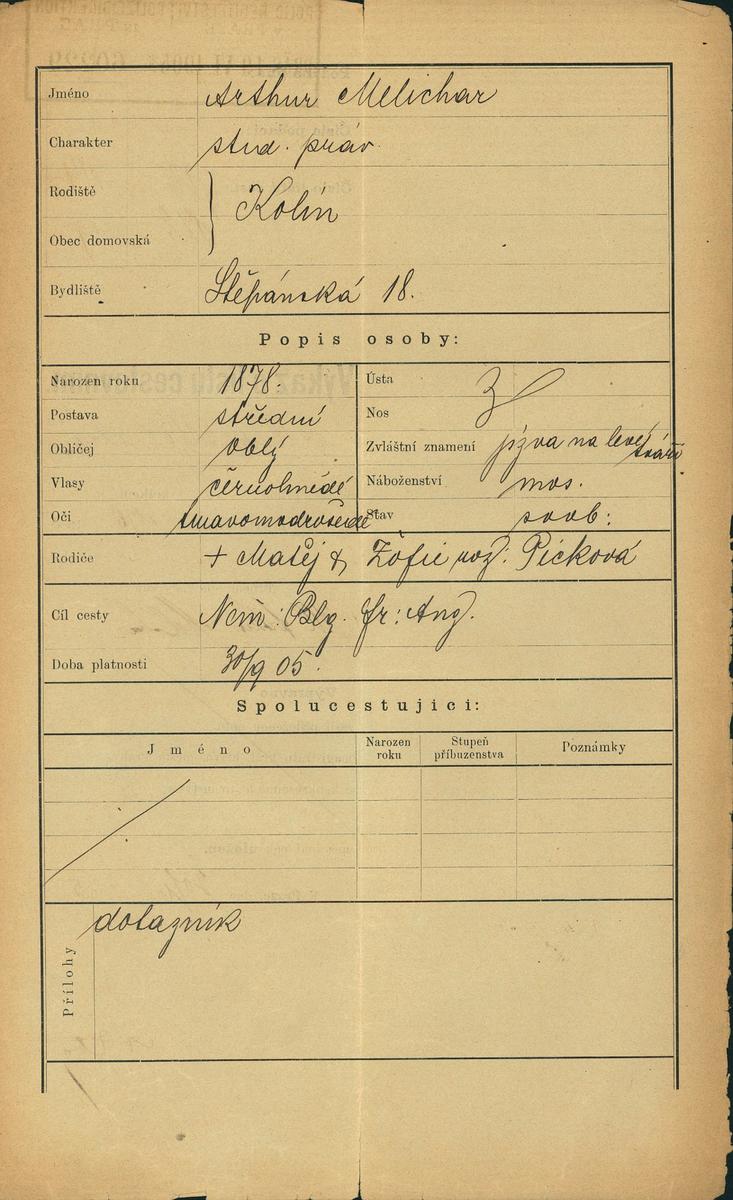 Jméno Arthur Melichar
Charakter stud. práv.
Rodiště
Kolín
Obec domovská
Bydliště Štěpánská 18.
Popis osoby:
Narozen roku 1878.
Ústa
Postava střední
Nos
Obličej oblý
Zvláštní znamení jizva na levé tváři
Vlasy černohnědé
Náboženství mos.
Oči tmavomodrošedé
Stav svob:
Rodiče + Matěj & Žofie roz: Picková
Cíl cesty Něm: Blg. fr: Ang.
Doba platnosti 30/9 05.
Spolucestující:
Jméno Narozen roku Stupeň příbuzenstva Poznámky
Přílohy
dotazník